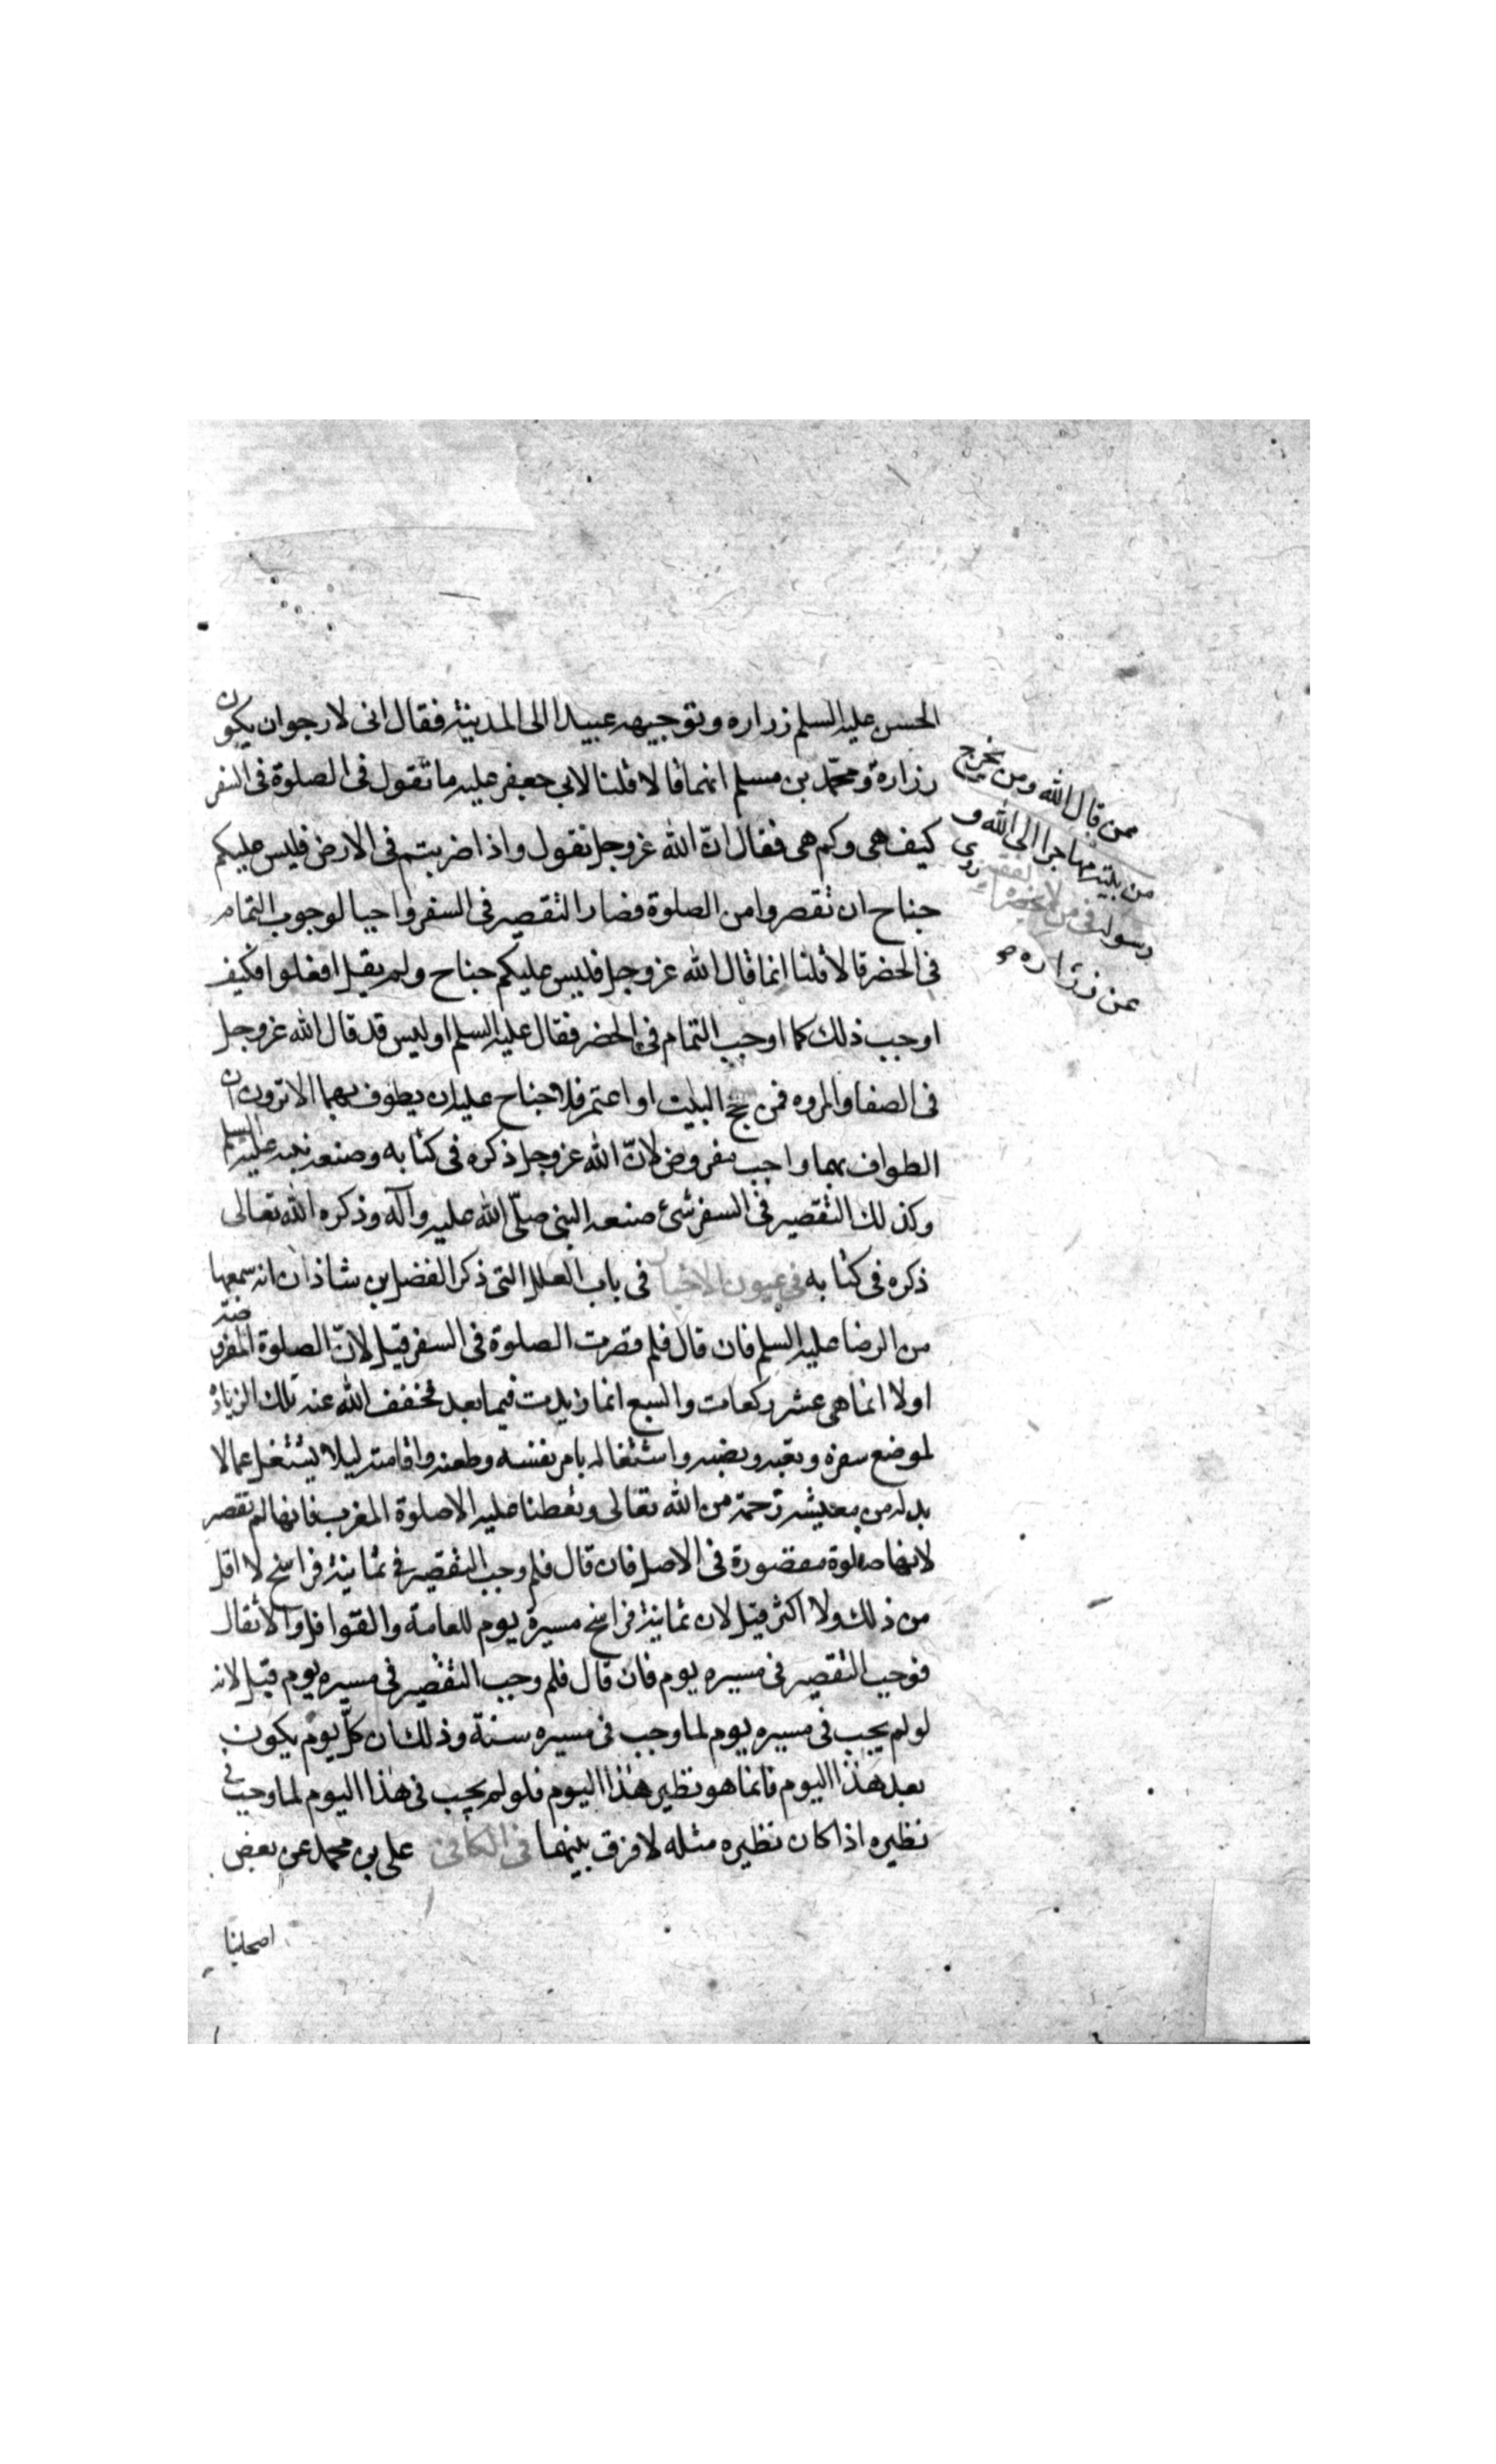 الحسن عليه السلم زراره وتوجيهه عبيدا الى المدينة فقال انى لارجو ان يكون
ممن قال الله ومن يخرج
من بيته مهاجرا الى الله و
رسوله فى من لا يحضره الفقيه روى
عن زراره
زرارة ومحمّد بن مسلم انهما قالا قلنا لابى جعفر عليه ما تقول فى الصلوة فى السفر
كيف هى وكم هى فقال انّ الله عزوجل يقول واذا ضربتم فى الارض فليس عليكم
جناح ان تقصروا من الصلوة فصار التقصير فى السفر واجبا لوجوب التمام
فى الحضر قالا قلنا انما قال الله عزوجل فليس عليكم جناح ولم يقل افعلوا فكيف
اوجب ذلك كما اوجب التمام فى الحضر فقال عليه السلم اوليس قد قال الله عزوجل
فى الصفا والمروه فمن حج البيت او اعتمر فلا جناح عليه ان يطوف بهما الا ترون ان
الطواف بهما واجب مفروض لانّ الله عزوجل ذكره فى كتابه وصنعه نبيه عليه السلم
وكذلك التقصير فى السفر شئ صنعه النبى صلّى الله عليه وآله وذكره الله تعالى
ذكره فى كتابه فى عيون الاخبار فى باب العلل التى ذكر الفضل بن شاذان انه سمعها
من الرضا عليه السلم فان قال فلم قصرت الصلوة فى السفر قيل لانّ الصلوة المفروضة
اولا انما هى عشر ركعات والسبع انما زيدت فيما بعد فخفف الله عنه تلك الزيادة
لموضع سفره وتعبه ونصبه واشتغاله بامر نفسه وطعنه واقامته ليلا يشتغل عما لا
بد له من معيشته رحمة من الله تعالى وتعطفا عليه الا صلوة المغرب فانها لم تقصر
لانها صلوة مقصورة فى الاصل فان قال فلم وجب التقصير فى ثمانية فراسخ لا اقل
من ذلك ولا اكثر قيل لان ثمانية فراسخ مسيرة يوم للعامة والقوافل والاثقال
فوجب التقصير فى مسيره يوم فان قال فلم وجب التقصير فى مسيره يوم قيل لانه
لو لم يجب فى مسيره يوم لما وجب فى مسيره سنة وذلك ان كلّ يوم يكون
بعد هذا اليوم فانما هو نظير هذا اليوم فلو لم يجب فى هذا اليوم لما وجب فى
نظيره اذا كان نظيره مثله لا فرق بينهما فى الكافى على بن محمد عن بعض
اصحابنا